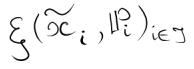 ξ(x̃ᵢ, ℙᵢ)ᵢ∈ℐ